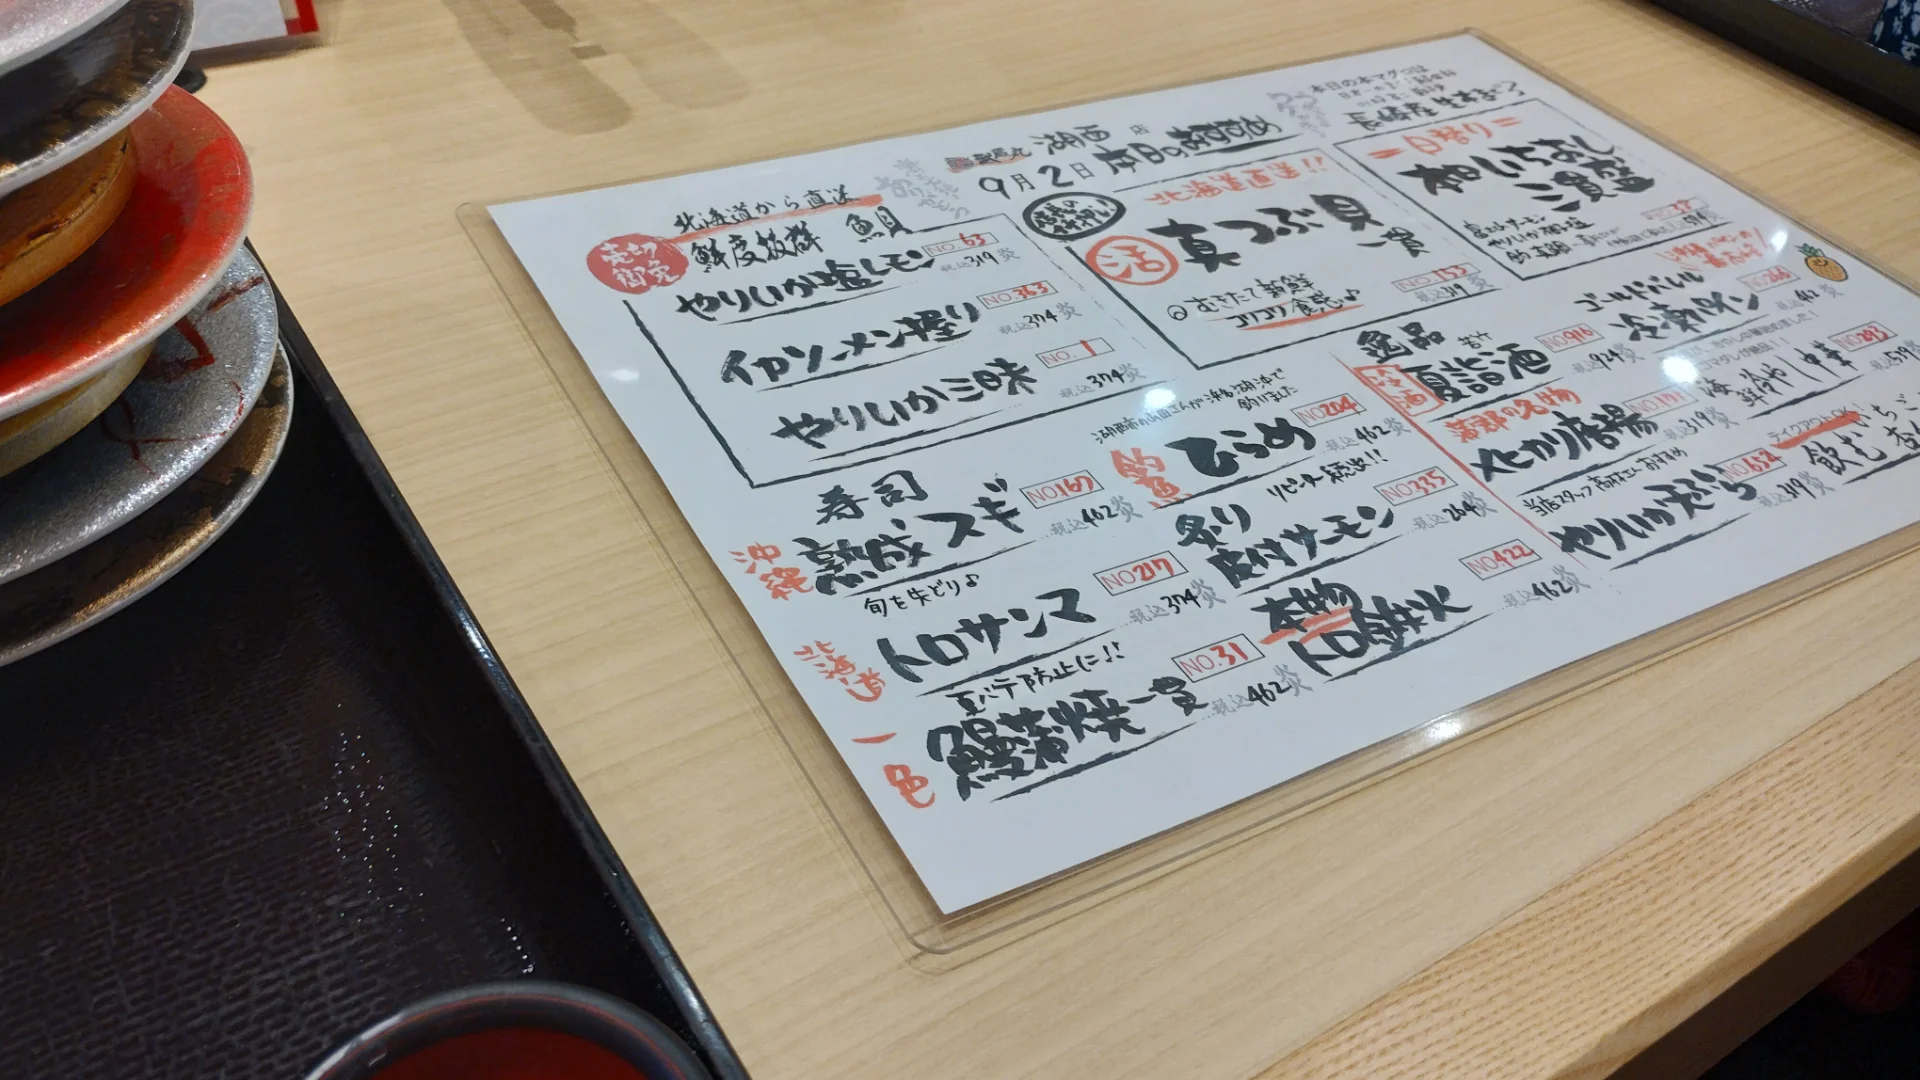 湖西店
9月2日 本日のお勧め
北海道から直送
鮮度抜群 魚貝
売切御免
やりいか塩レモン
NO.63
税込319円
イカソーメン握り
NO.363
税込374円
やりいか三昧
NO.1
税込374円
北海道直送!!
活 真つぶ貝 一貫
NO.153
税込319円
むきたて新鮮
コリコリ食感♪
本日の本マグロは
長崎産 生本まぐろ
=日替り=
本日いちおし
三貫盛
寿司
沖縄 熟成スギ
NO.167
税込462円
旬を先どり♪
北海道 トロサンマ
NO.217
税込374円
夏バテ防止に!!
一色 鰻蒲焼一貫
NO.31
税込462円
湖西市の山田さんが浜名湖沖で
釣りました
釣 ひらめ
NO.204
税込462円
リピーター続出!!
炙り
皮付サーモン
NO.335
税込264円
本物
トロ鉄火
NO.422
税込462円
逸品
冷酒 夏詰酒
NO.916
税込924円
蒲郡の名物
メヒカリ唐揚
NO.171
税込319円
当店スタッフ 高林さんおすすめ
やりいか天ぷら
NO.652
税込319円
ゴールドバレル
冷凍パイン
NO.266
海鮮冷やし中華
NO.293
テイクアウトOK!
飲む